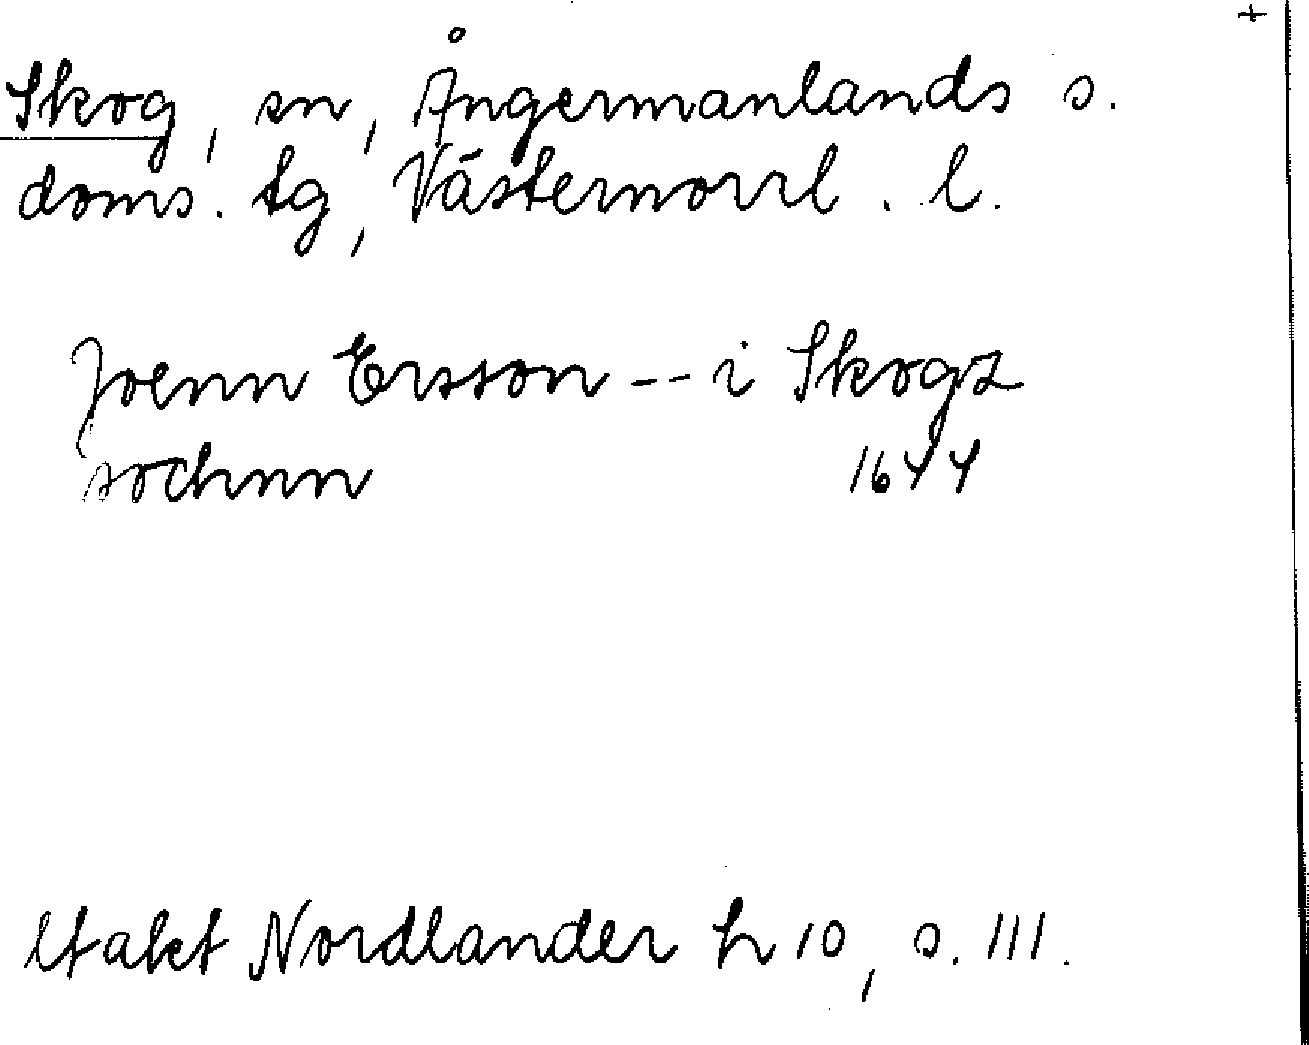 +
Skog, sn, Ångermanlands s.
doms. tg, Västernorrl. l.
Joenn Ersson -- i Skogz
sochnn 1644
ltakt Nordlander h 10, s. 111.